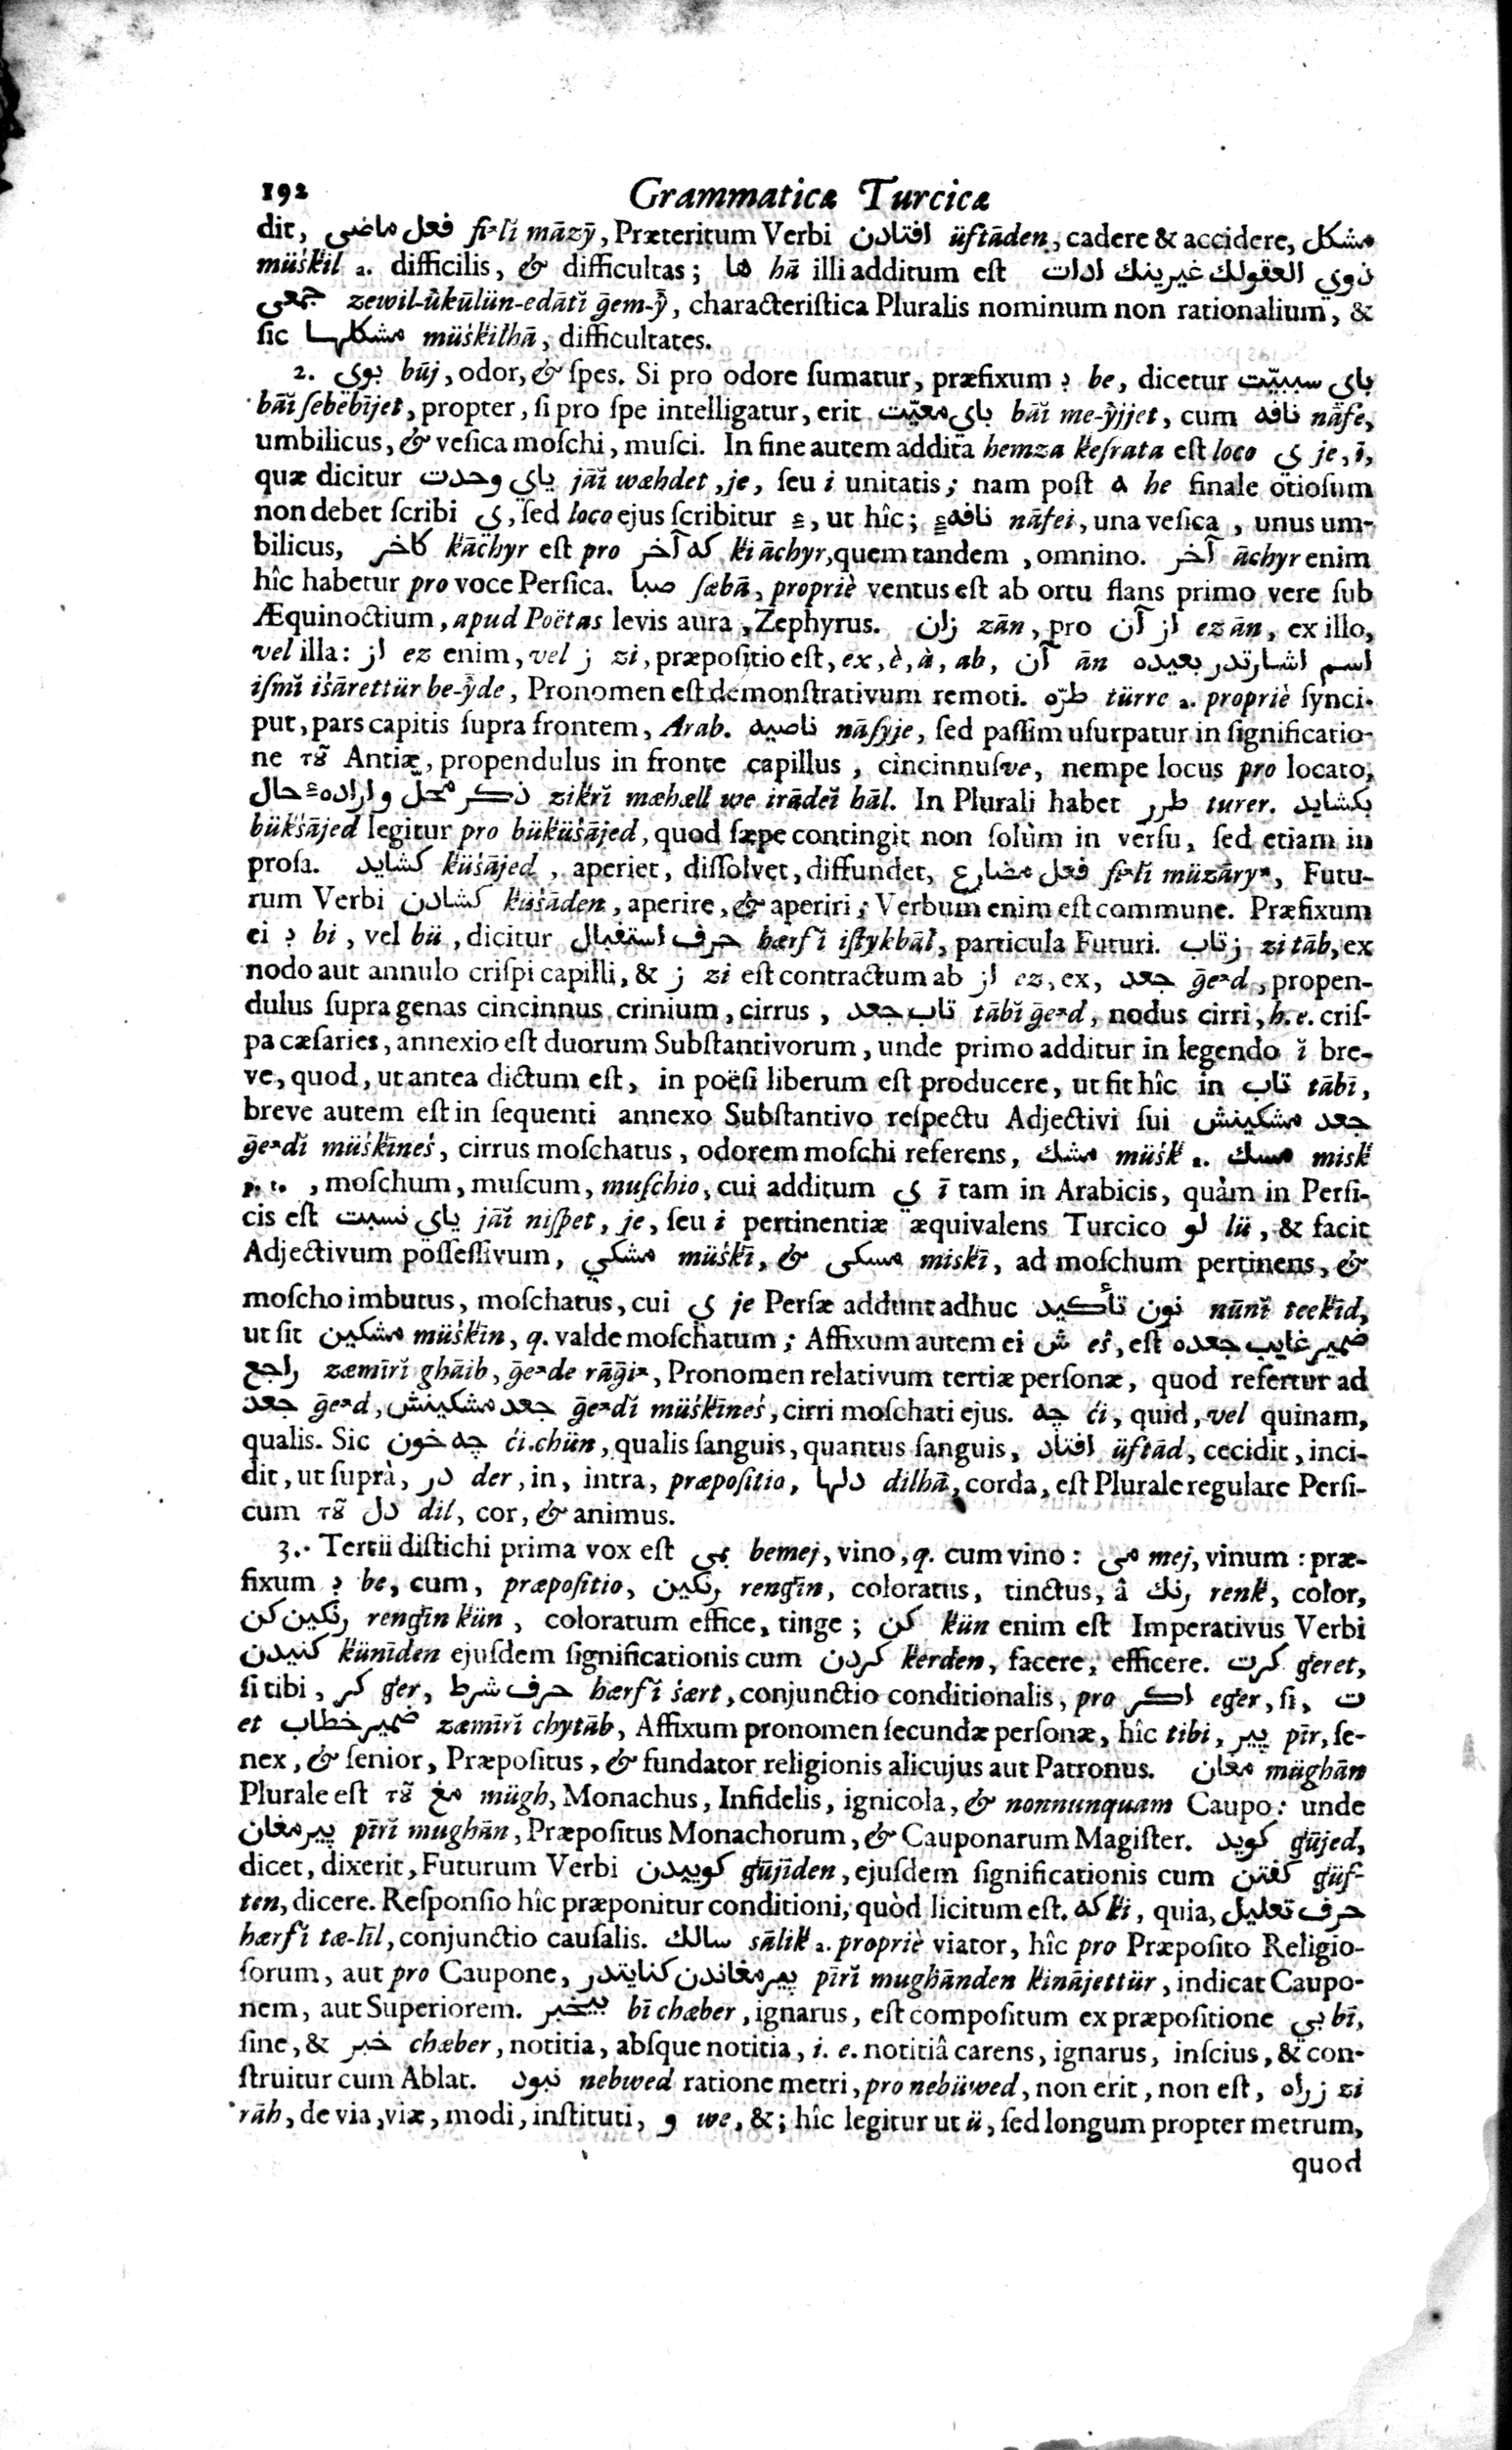 192 Grammaticæ Turcicæ
dit, فعل ماضى fiꜣlĭ māzȳ, Præteritum Verbi افتادن üftāden, cadere & accidere, مشكل
müśkil a. difficilis, & difficultas; ها hā illi additum est ذوي العقولك غيرينك ادات
جمعى zewil-ükūlün-edātĭ ḡem-ȳ, characteristica Pluralis nominum non rationalium, &
sic مشكلها müśkilhā, difficultates.
2. بوي būj, odor, & spes. Si pro odore sumatur, præfixum ب be, dicetur باي سببيّت
bāĭ sebebījet, propter, si pro spe intelligatur, erit باي معيّت bāĭ me-ȳjjet, cum نافه nāfe,
umbilicus, & vesica moschi, musci. In fine autem addita hemza kesrata est loco ي je, ī,
quæ dicitur ياي وحدت jāĭ wæhdet, je, seu i unitatis; nam post ه he finale otiosum
non debet scribi ي, sed loco ejus scribitur ء, ut hîc; نافهء nāfei, una vesica, unus um-
bilicus, كاخر kāchyr est pro كه آخر ki āchyr, quem tandem, omnino. آخر āchyr enim
hîc habetur pro voce Persica. صبا sæbā, propriè ventus est ab ortu flans primo vere sub
Æquinoctium, apud Poëtas levis aura, Zephyrus. زان zān, pro از آن ez ān, ex illo,
vel illa: از ez enim, vel ز zi, præpositio est, ex, è, à, ab, آن ān اسم اشارتدر بعيده
ismĭ iśārettür be-ȳde, Pronomen est demonstrativum remoti. طرّه türre a. propriè synci-
put, pars capitis supra frontem, Arab. ناصيه nāsyje, sed passim usurpatur in significatio-
ne τȣ̃ Antiæ, propendulus in fronte capillus, cincinnusve, nempe locus pro locato,
ذكر محلّ و ارادهء حال zikrĭ mæhæll we irādeĭ hāl. In Plurali habet طرر turer. بكشايد
bükśājed legitur pro büküśājed, quod sæpe contingit non solùm in versu, sed etiam in
prosa. كشايد küśājed, aperiet, dissolvet, diffundet, فعل مضارع fiꜣlĭ müzāryꜣ, Futu-
rum Verbi كشادن küśāden, aperire, & aperiri; Verbum enim est commune. Præfixum
ei ب bi, vel bü, dicitur حرف استقبال hærfĭ istykbāl, particula Futuri. زتاب zi tāb, ex
nodo aut annulo crispi capilli, & ز zi est contractum ab از ez, ex, جعد ḡeꜣd, propen-
dulus supra genas cincinnus crinium, cirrus, تاب جعد tābĭ ḡeꜣd, nodus cirri, h. e. cris-
pa cæsaries, annexio est duorum Substantivorum, unde primo additur in legendo ĭ bre-
ve, quod, ut antea dictum est, in poësi liberum est producere, ut fit hîc in تاب tābī,
breve autem est in sequenti annexo Substantivo respectu Adjectivi sui جعد مشكينش
ḡeꜣdĭ müśkīneś, cirrus moschatus, odorem moschi referens, مشك müśk a. مسك misk
p. t., moschum, muscum, muschio, cui additum ي ī tam in Arabicis, quàm in Persi-
cis est ياي نسبت jāĭ nispet, je, seu i pertinentiæ æquivalens Turcico لو lü, & facit
Adjectivum possessivum, مشكي müśkī, & مسكى miskī, ad moschum pertinens, &
moscho imbutus, moschatus, cui ي je Persæ addunt adhuc نون تأكيد nūnĭ teekīd,
ut sit مشكين müśkīn, q. valde moschatum; Affixum autem ei ش eś, est ضمير غايب جعده
راجع zæmīrĭ ghāib, ḡeꜣde rāḡiꜣ, Pronomen relativum tertiæ personæ, quod refertur ad
جعد ḡeꜣd, جعد مشكينش ḡeꜣdĭ müśkīneś, cirri moschati ejus. چه ći, quid, vel quinam,
qualis. Sic چه خون ći chün, qualis sanguis, quantus sanguis, افتاد üftād, cecidit, inci-
dit, ut suprà, در der, in, intra, præpositio, دلها dilhā, corda, est Plurale regulare Persi-
cum τȣ̃ دل dil, cor, & animus.
3. Tertii distichi prima vox est بمى bemej, vino, q. cum vino: مى mej, vinum: præ-
fixum ب be, cum, præpositio, رنكين renǵīn, coloratus, tinctus, â رنك renk, color,
رنكين كن renǵīn kün, coloratum effice, tinge; كن kün enim est Imperativus Verbi
كنيدن künīden ejusdem significationis cum كردن kerden, facere, efficere. كرت ǵeret,
si tibi, كر ǵer, حرف شرط hærfĭ śært, conjunctio conditionalis, pro اكر eǵer, si, ت
et ضمير خطاب zæmīrĭ chytāb, Affixum pronomen secundæ personæ, hîc tibi, پير pīr, se-
nex, & senior, Præpositus, & fundator religionis alicujus aut Patronus. مغان müghān
Plurale est τȣ̃ مغ mügh, Monachus, Infidelis, ignicola, & nonnunquam Caupo: unde
پير مغان pīrĭ mughān, Præpositus Monachorum, & Cauponarum Magister. كويد ǵūjed,
dicet, dixerit, Futurum Verbi كوييدن ǵūjīden, ejusdem significationis cum كفتن ǵüf-
ten, dicere. Responsio hîc præponitur conditioni, quòd licitum est. كه ki, quia, حرف تعليل
hærfĭ tæ-līl, conjunctio causalis. سالك sālik a. propriè viator, hîc pro Præposito Religio-
sorum, aut pro Caupone, پير مغاندن كنايتدر pīrĭ mughānden kinājettür, indicat Caupo-
nem, aut Superiorem. بيخبر bī chæber, ignarus, est compositum ex præpositione بي bī,
sine, & خبر chæber, notitia, absque notitia, i. e. notitiâ carens, ignarus, inscius, & con-
struitur cum Ablat. نبود nebwed ratione metri, pro nebüwed, non erit, non est, زراه zi
rāh, de via, viæ, modi, instituti, و we, &; hîc legitur ut ü, sed longum propter metrum,
quod